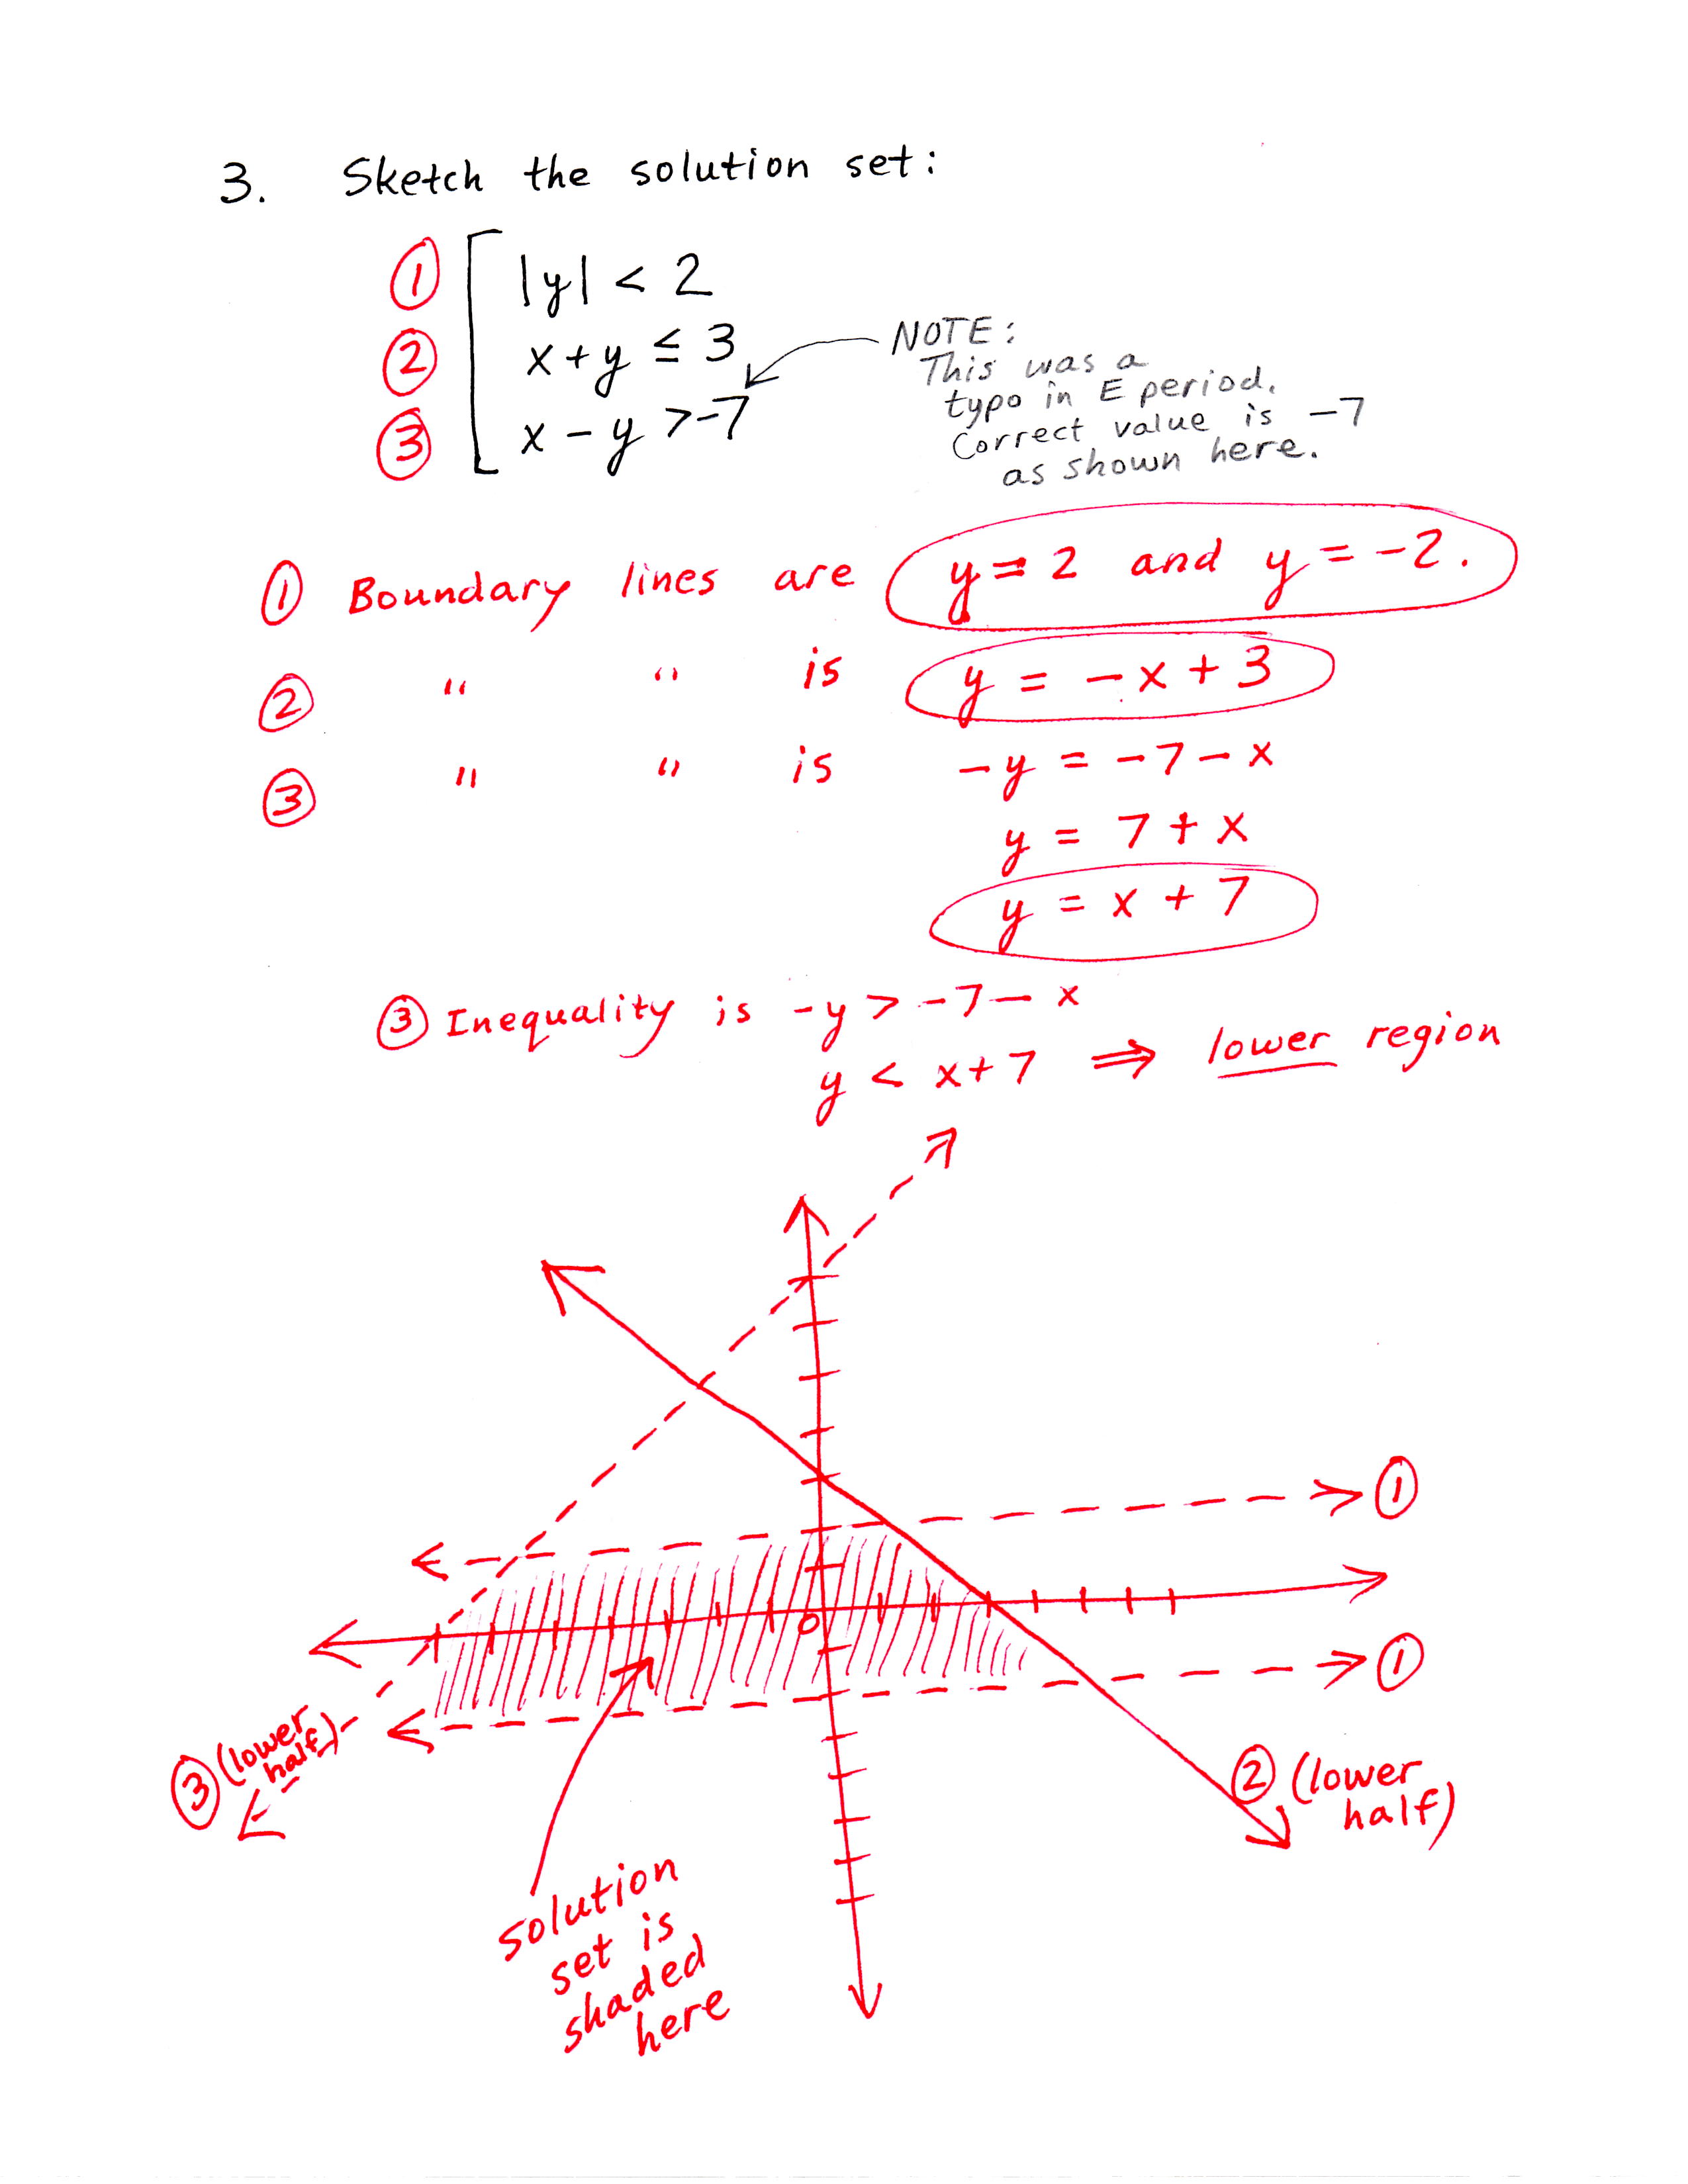 3. Sketch the solution set:
① |y| < 2
② x+y ≤ 3
③ x - y > -7
NOTE:
This was a
typo in E period.
Correct value is -7
as shown here.
① Boundary lines are y = 2 and y = -2.
② " " is y = -x + 3
③ " " is -y = -7 - x
y = 7 + x
y = x + 7
③ Inequality is -y > -7 - x
y < x+7 ⇒ lower region
①
0
①
③ (lower
half)
② (lower
half)
solution
set is
shaded
here